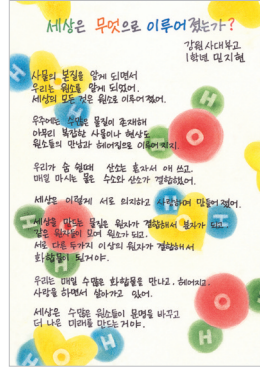 세상은 무엇으로 이루어졌는가?
강원사대부고
1학년 민지현
사물의 본질을 알게 되면서
우리는 원소를 알게 되었어.
세상의 모든 것은 원소로 이루어졌어.
우주에는 수많은 물질이 존재해
아무리 복잡한 사물이나 현상도
원소들의 만남과 헤어짐으로 이루어지지.
우리가 숨 쉴때 산소는 혼자서 애 쓰고.
매일 마시는 물은 수소와 산소가 결합했어.
세상은 이렇게 서로 의지하고 사랑하며 만들어 졌어.
세상을 만드는 물질은 원자가 결합해서 분자가 되고
같은 원자들이 모여 원소가 되고.
서로 다른 두가지 이상의 원자가 결합해서
화합물이 되거야.
우리는 매일 수많은 화합물을 만나고. 헤어지고.
사랑을 하면서 살아가고 있어.
세상은 수많은 원소들이 문명을 바꾸고
더 나은 미래를 만드는거야.
H
H
O
H
O
H
H
O
H